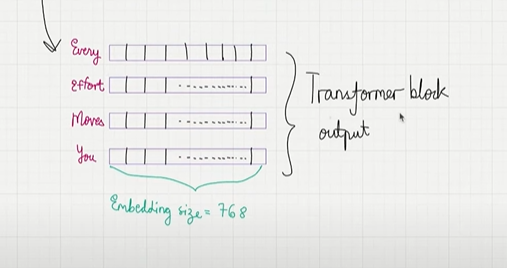 Every
Effort
Moves
You
Transformer block
output
Embedding size = 768